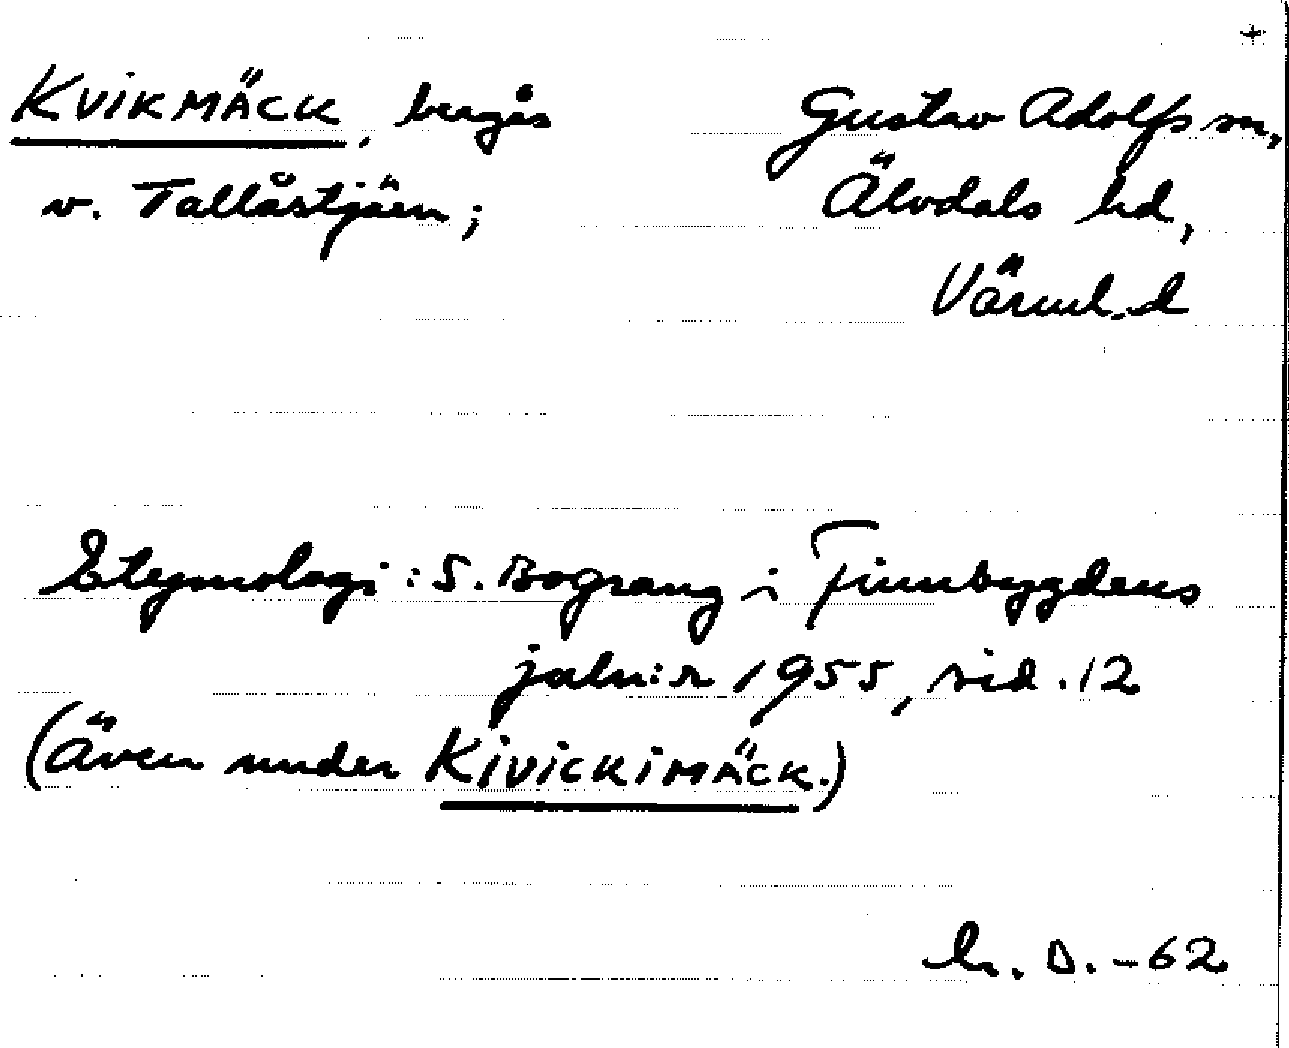 +
KVIKMÄCK, bergås
v. Tallåstjärn;
Gustav Adolfs sn,
Älvdals hd,
Värml.d
Etymologi: S. Bograng i Finnbygdens
jaln:r 1955, sid. 12
(Även under KIVICKIMÄCK.)
D. -62